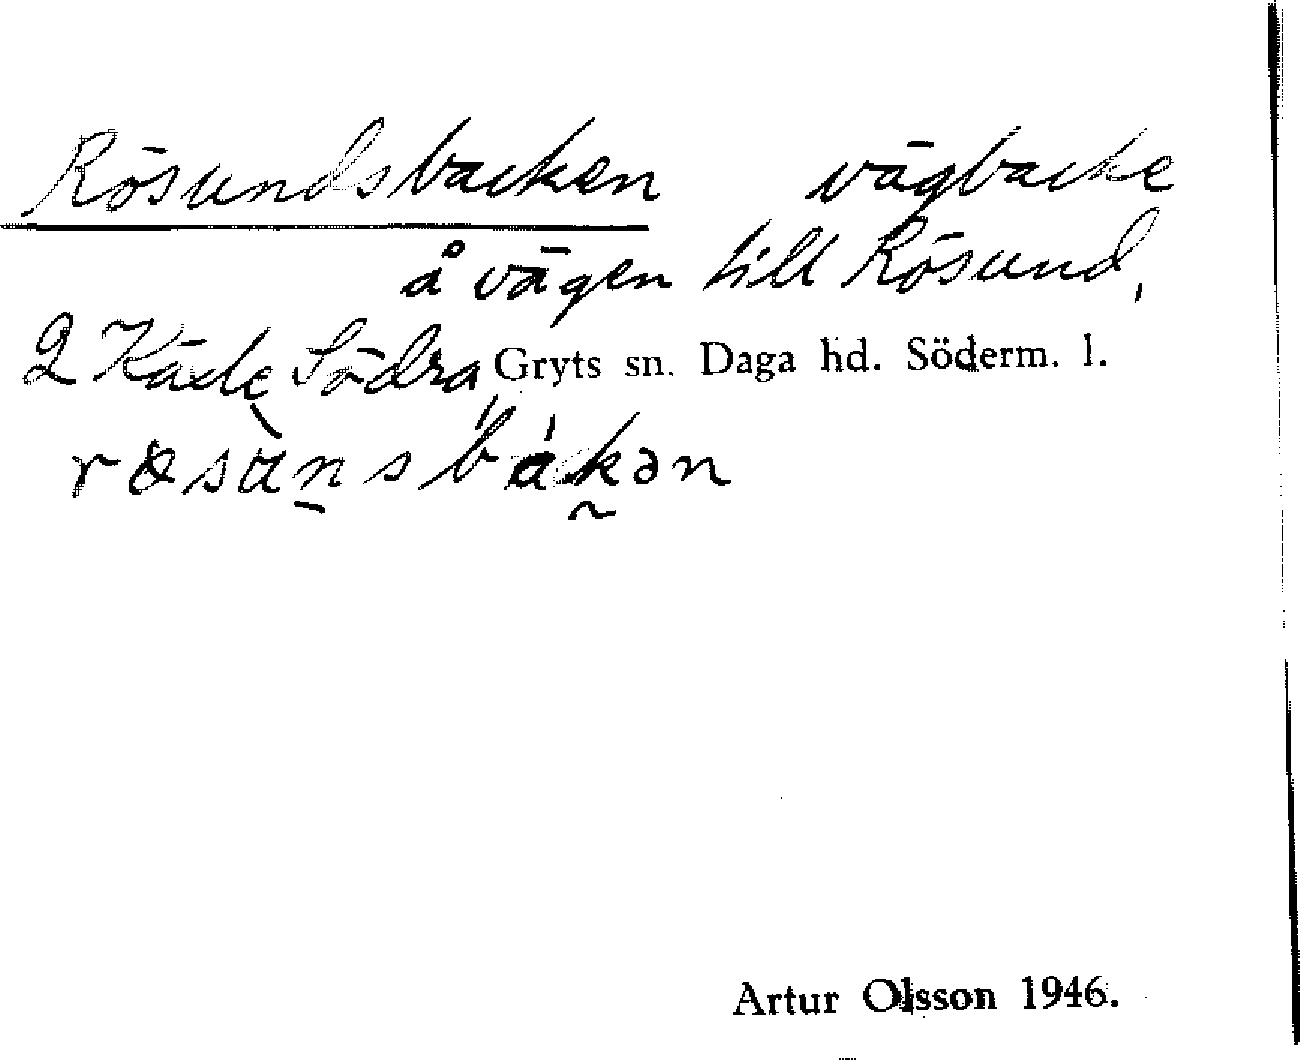 Rösundsbacken vägbacke
å vägen till Rösund,
2 Käde Södra, Gryts sn. Daga hd. Söderm. l.
Artur Olsson 1946.